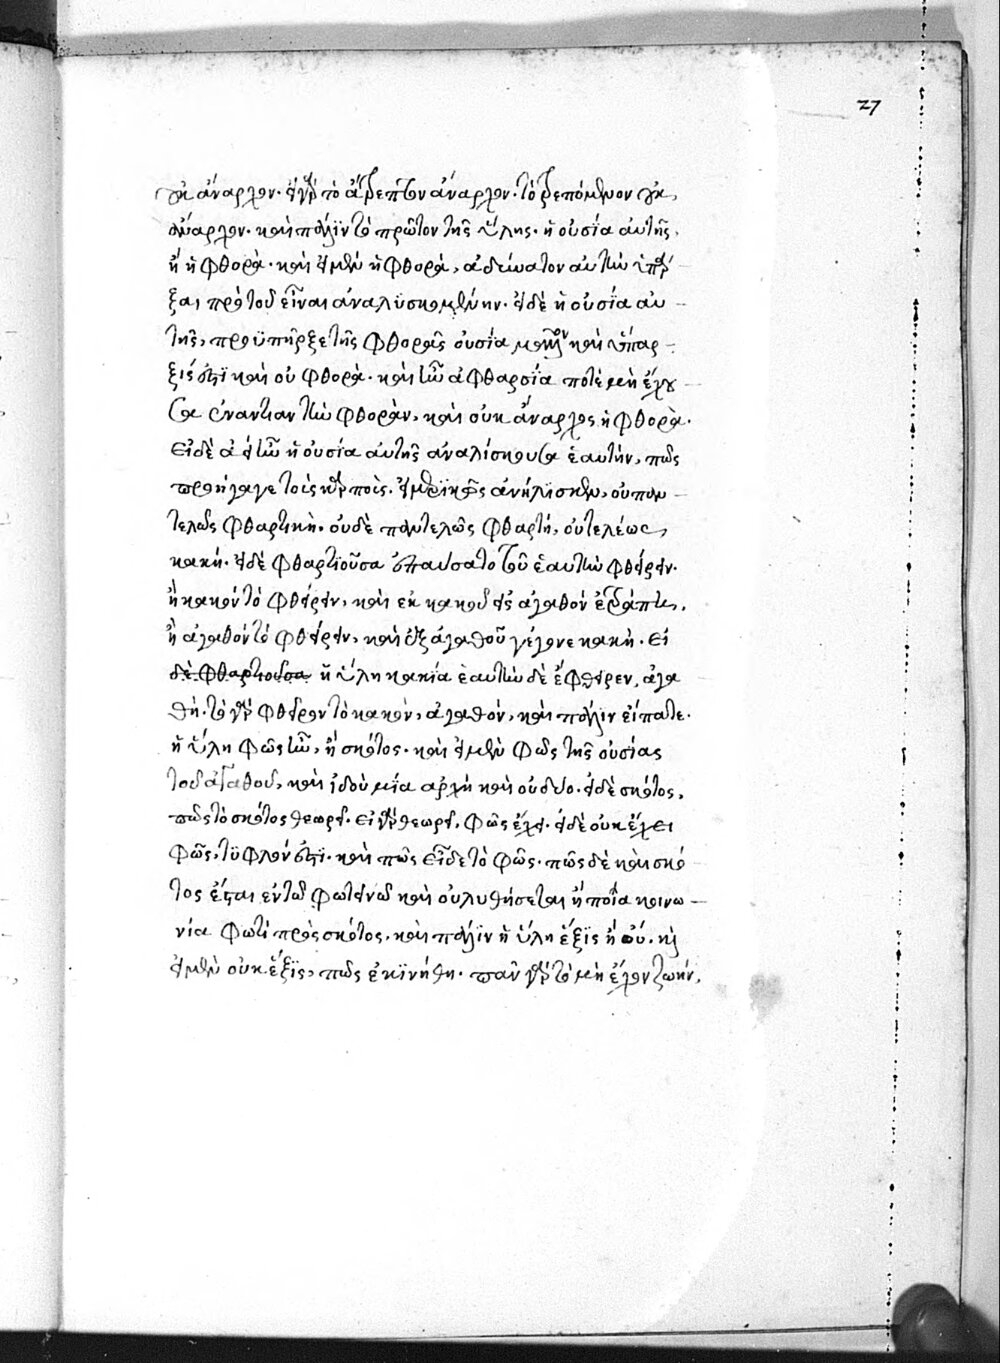 27
οὐκ ἄναρχον. εἰ γὰρ τὸ ἄτρεπτον ἄναρχον. τὸ τρεπόμενον οὐκ
ἄναρχον. καὶ πάλιν τὸ πρῶτον τῆς ὕλης. ἡ οὐσία αὐτῆς,
ἢ ἡ φθορὰ. καὶ εἰ μὲν ἡ φθορὰ, ἀδύνατον αὐτὴν ὑπάρ
ξαι πρὸ τοῦ εἶναι ἀναλϋσκομένην. εἰ δὲ ἡ οὐσία αὐ
τῆς, προϋπῆρξε τῆς φθορᾶς οὐσία μᾶλλον καὶ ὕπαρ
ξις ἐστῒ καὶ οὐ φθορὰ. καὶ ἦν ἀφθαρσΐα ποτὲ μὴ ἔχου
σα ἐναντίαν τὴν φθορὰν, καὶ οὐκ ἄναρχος ἡ φθορὰ.
εἰ δὲ ἀεὶ ἦν ἡ οὐσία αὐτῆς ἀναλίσκουσα ἑαυτήν, πῶς
προήγαγε τοὺς καρποὺς. εἰ μερϊκῶς ἀνήλϊσκεν, οὐ παν
τελῶς φθαρτικὴ. οὐδὲ παντελῶς φθαρτή, οὐ τελέως,
κακή. εἰ δὲ φθαρτϊοῦσα ἐπαύσατο τοῦ ἑαυτὴν φθείρειν.
ἢ κακόν τὸ φθείρειν, καὶ ἐκ κακοῦ εἰς ἀγαθόν ἐτράπη,
ἢ ἀγαθόν τὸ φθείρειν, καὶ ἐξ ἀγαθοῦ γέγονε κακὴ. εἰ
δὲ φθαρτιοῦσα ἡ ὕλη κακία ἑαυτὴν δὲ ἔφθειρεν, ἀγα
θή. τὸ γὰρ φθεῖρον τὸ κακὸν, ἀγαθόν, καὶ πάλιν εἴπατε.
ἡ ὕλη φῶς ἦν, ἢ σκότος. καὶ εἰ μὲν φῶς τῆς οὐσίας
τοῦ ἀγαθοῦ, καὶ ἰδοὺ μία ἀρχὴ καὶ οὐ δύο. εἰ δὲ σκότος,
πῶς τὸ σκότος θεωρεῖ. εἰ γὰρ θεωρεῖ, φῶς ἔχει. εἰ δὲ οὐκ ἔχει
φῶς, τϋφλόν ἐστϊ. καὶ πῶς εἶδε τὸ φῶς. πῶς δὲ καὶ σκό
τος ἔσται ἐν τῶ φωτεινῶ καὶ οὐ λυθήσεται ἢ ποΐα κοινω
νία φωτὶ πρὸς σκότος, καὶ πάλϊν ἡ ὕλη ἕξϊς ἢ οὔ. καὶ
εἰ μὲν οὐκ ἕξϊς, πῶς ἐκϊνήθη. πᾶν γὰρ τὸ μὴ ἔχον ζωήν,